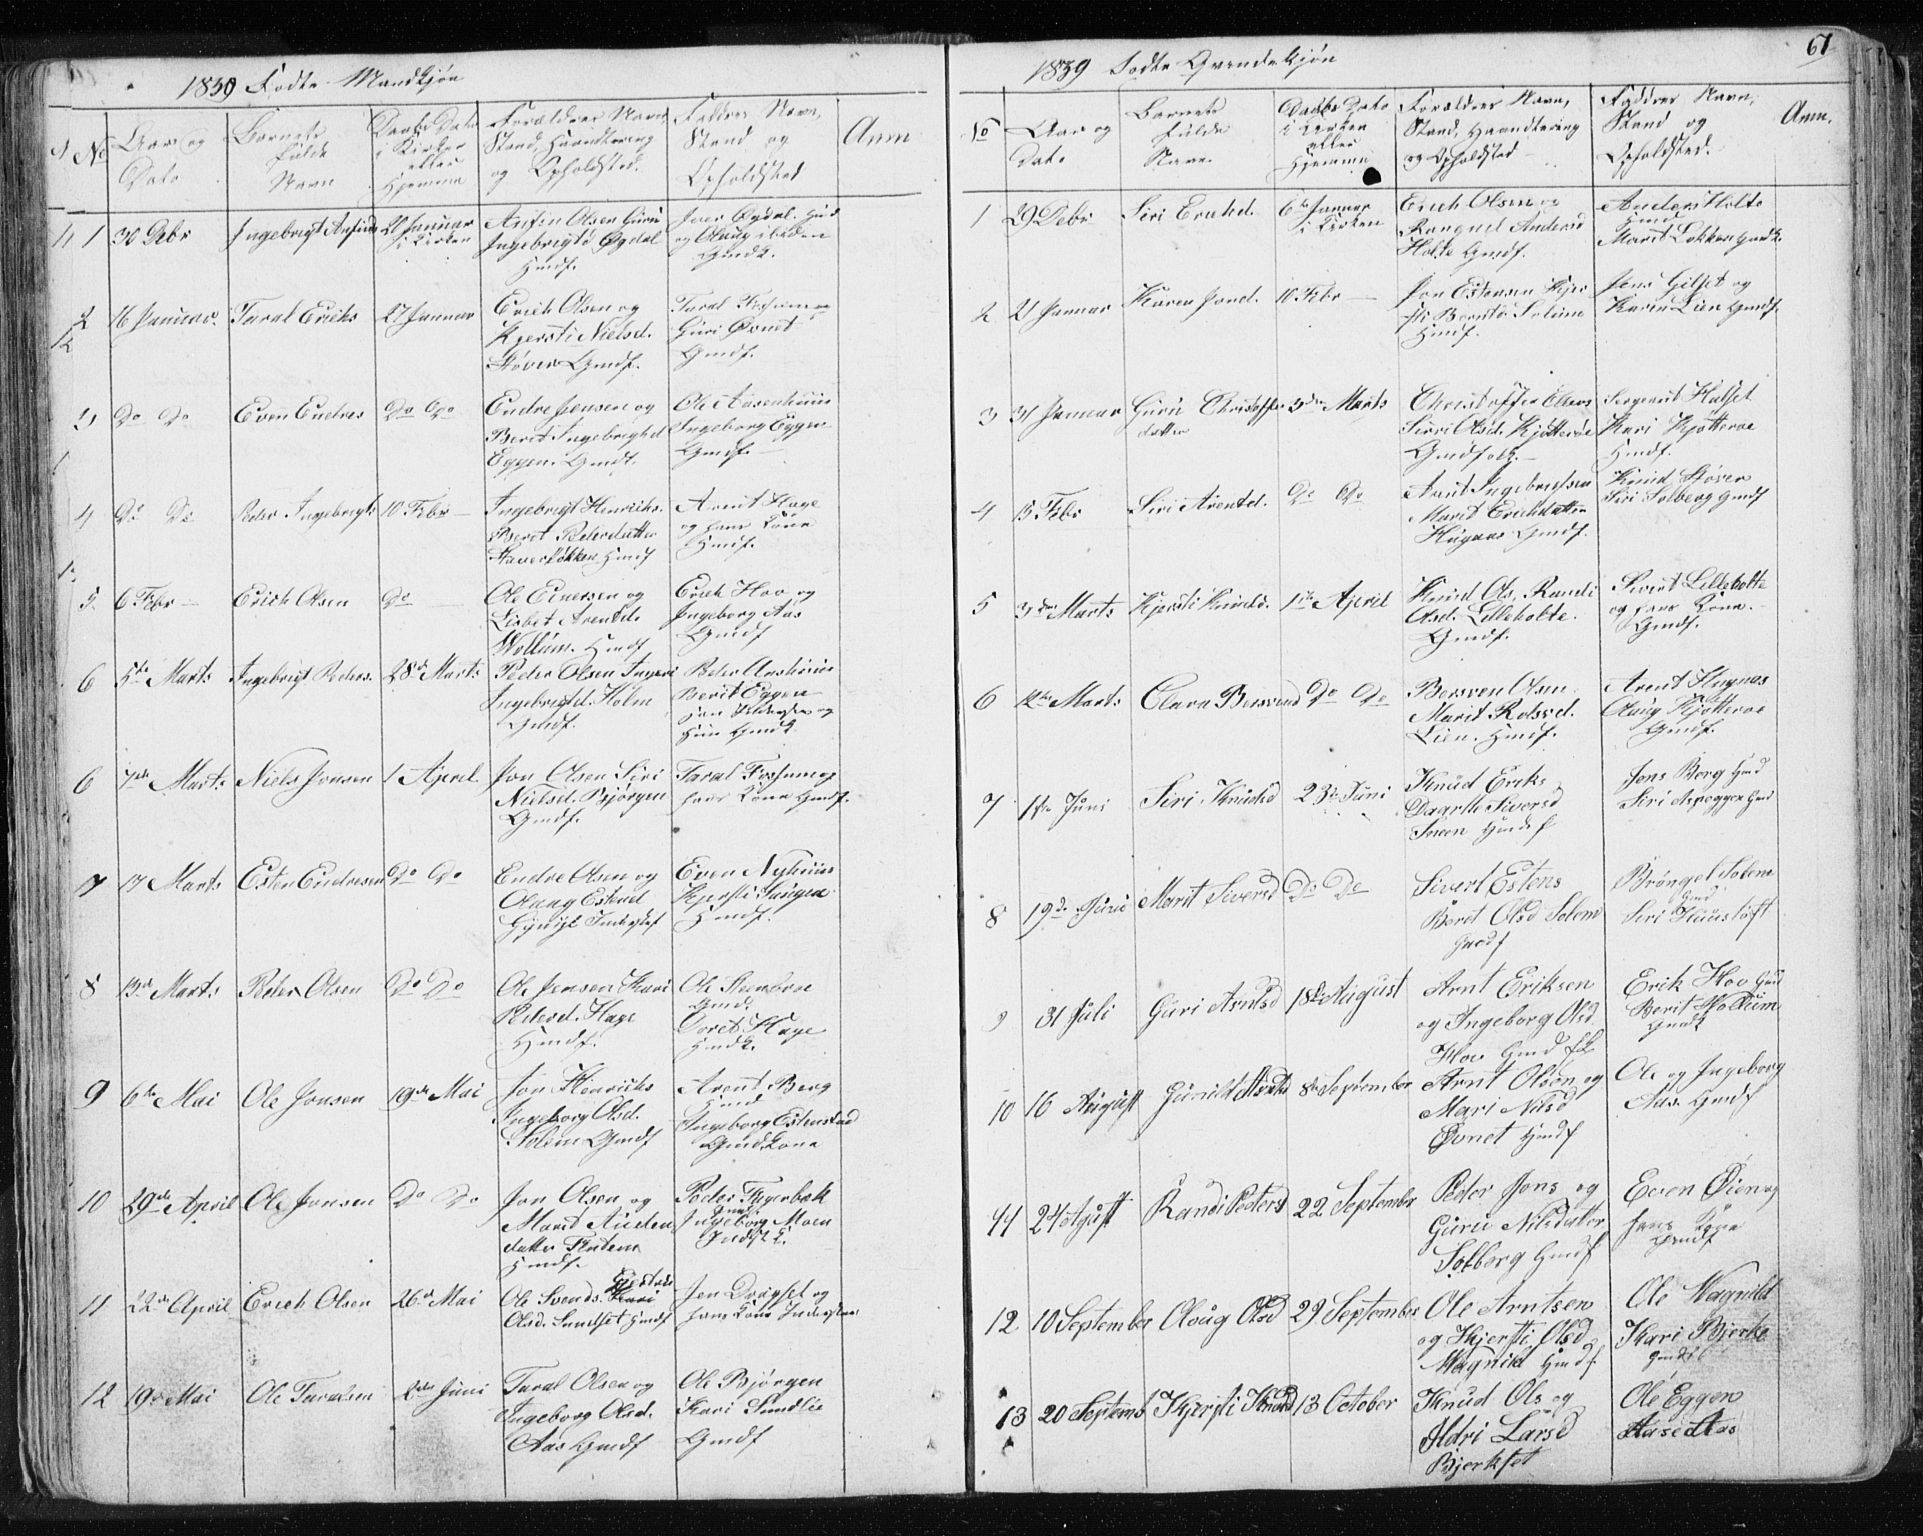 1839 Fødte Mandkjøn
No
Aar og
Dato
Barnets
fulde
Navn
Daabs Dato
i Kirken
eller
Hjemme
Forældres Navn,
Stand, Haandtering
og Opholdsted.
Faddres Navn,
Stand og
Opholdsted
Anm
1
30 Debr
Ingebrigt Anfinds
20 Januar
i Kirken
Anfin Olsen Guru
Ingebrigtd Øgdal
Gmdf.
Iver Øgdal. Gmd
og Olaug ibiden
Gmdk.
2
16 Januar.
Taral Erichs
27 Januar
Erich Olsen og
Kjersti Nielsd.
Støver Gmdf.
Taral Fossum og
Guri Øvnet
Gmdf.
3
Do Do
Even Endres
Do Do
Endre Jensen og
Berit Ingebrigtd
Eggen. Gmdf.
Ole Aasenhuus
Ingeborg Eggen
Gmdf.
4
Do Do
Peder Ingebrigts
10 Febr
Ingebrigt Henrichs.
Berit Pedersdatter
Haverløkken Hmdf
Arent Hage
og hans Kone
Hmdf.
5.
6 Febr
Erich Olsen
Do
Ole Einersen og
Lisbet Arentd.
Wollum. Hmdf
Erich Hov og
Ingeborg Aas
Gmdf
6
5te Marts
Ingebrigt Peders.
28de Marts
Peder Olsen Ingeri
Ingebrigtd. Holm
Gmdf.
Peder Aashuus
Berit Eggen
6
7de Marts
Niels Jonsen
1 April
Jon Olsen Siri
Nielsd. Bjørgen
Gmdf.
Taral Fossum og
hans Kone Gmdf.
7
17 Marts
Esten Endresen
Do Do
Endre Olsen og
Olaug Estend
Even Nyhuus
Kjersti
Hmdf.
8
13de Marts
Peder Olsen
Do Do
Ole Jensen Kari
Pedersd. Hage
Hmdf.
Ole Steenbroe
Gmd.
Dorit Hage
Hmdk.
9
6te Mai
Ole Jonsen
19de Mai
Jon Henrichs
Ingeborg Olsd.
Solem Gmdf
Arent Berg
Hmd
Ingeborg Estenstad
Gmdkone
10
29de April
Ole Jonsen
Do Do
Jon Olsen og
Marit Anden
datter Flatem
Hmdf.
Peder
Ingeborg Moen
11
22de April
Erich Olsen
26de Mai
Ole Svends. Kari
Olsd. Sundset Hmdf
Jon Drøgset og
hans Kone Inderster
12
19de Mai
Ole Taralsen
2den Juni
Taral Olsen og
Ingeborg Olsd.
Aas Gmdf
Ole Bjørgen
Kari Sundlie
Gmdf
67
1839 Fødte Qvindekjøn
No
Aar og
Dato
Barnets
fulde
Navn.
Daabs Dato
i Kirken
eller
Hjemme
Forældres Navn,
Stand, Haandtering
og Opholdsted
Faddres Navn,
Stand og
Opholdsted.
Anm.
1
29 Debr
Siri Erichd.
6te Januar
i Kirken
Erich Olsen og
Rangnel Andersd
Holte Gmdf.
Anders Holte
Hmd
Marit Løkken Gmdk.
2
21 Januar
Karen Jond.
10 Febr
Jon Estensen Kjer
sti Berntd Solum
Hmdf.
Jens Gilset og
Karen Lien Hmdf.
3
31 Januar
Guru Christoffer
datter
3die Marts
Christoffer Olsen
Sirri Olsd. Kjøtterøe
Gmdfolk.
Sergeant Halset
Kari Kjøtterøe
Hmdf.
4
15 Febr
Siri Arentd.
Do Do
Arnt Ingebrigtsen
Marit Erichdatter
Hugaas Gmdf.
Knud Støver
Siri Solberg Gmdf
5
3die Marts
Kjersti Knudsd.
1ste April
Knud Ols. Randi
Olsd. Lilleholte.
Gmdf.
Sivert Lilleholte
og hans Kone.
Gmdf.
6
12te Marts
Olava Bersvend
Do Do
Bersven Olsen
Marit Rolsvd.
Lien. Hmdf.
Arent Hugaas
Olaug Kjøtterøe
Gmdf.
7
1ste Juni
Siri Knudsd
23de Juni
Knud Eriks
Daarthe Siversd
Sneen Hmdf
Jens Berg Hmd
Siri Aspeggen Gmd
8
19de Juni
Marit Siversd
Do Do
Sivert Estens
Beret Olsd Solem
Gmdf
Brøngel Solem
Gmd
Siri
9
31 Juli
Guri Arntsd
18de August
Arnt Eriksen
og Ingeborg Olsd
Hov Gmdfk
Erik Hov Gmd
Berit Wollum
Gmdk
10
16 August
Gunild Arntsd
8de September
Arnt Olsen og
Mari Nilsd
Øvnet Hmdf
Ole og Ingeborg
Aas Hmdf
11
24 Agust
Randi Peders
22 September
Peder Jons og
Guru Nilsdatter
Solberg Gmdf
Even Øien og
hans Kone
Gmdf
12
10 September
Olaug Olsd
29 September
Ole Arntsen
og Kjersti Olsd
Wagnild Hmdf
Ole Wagnild
Kari Bjerke
Gmdf
13
20 Septemb
Kjersti Knudsd
13 October
Knud Ols og
Aldri Larsd
Bjerkset
Ole Eggen
Aase Aas